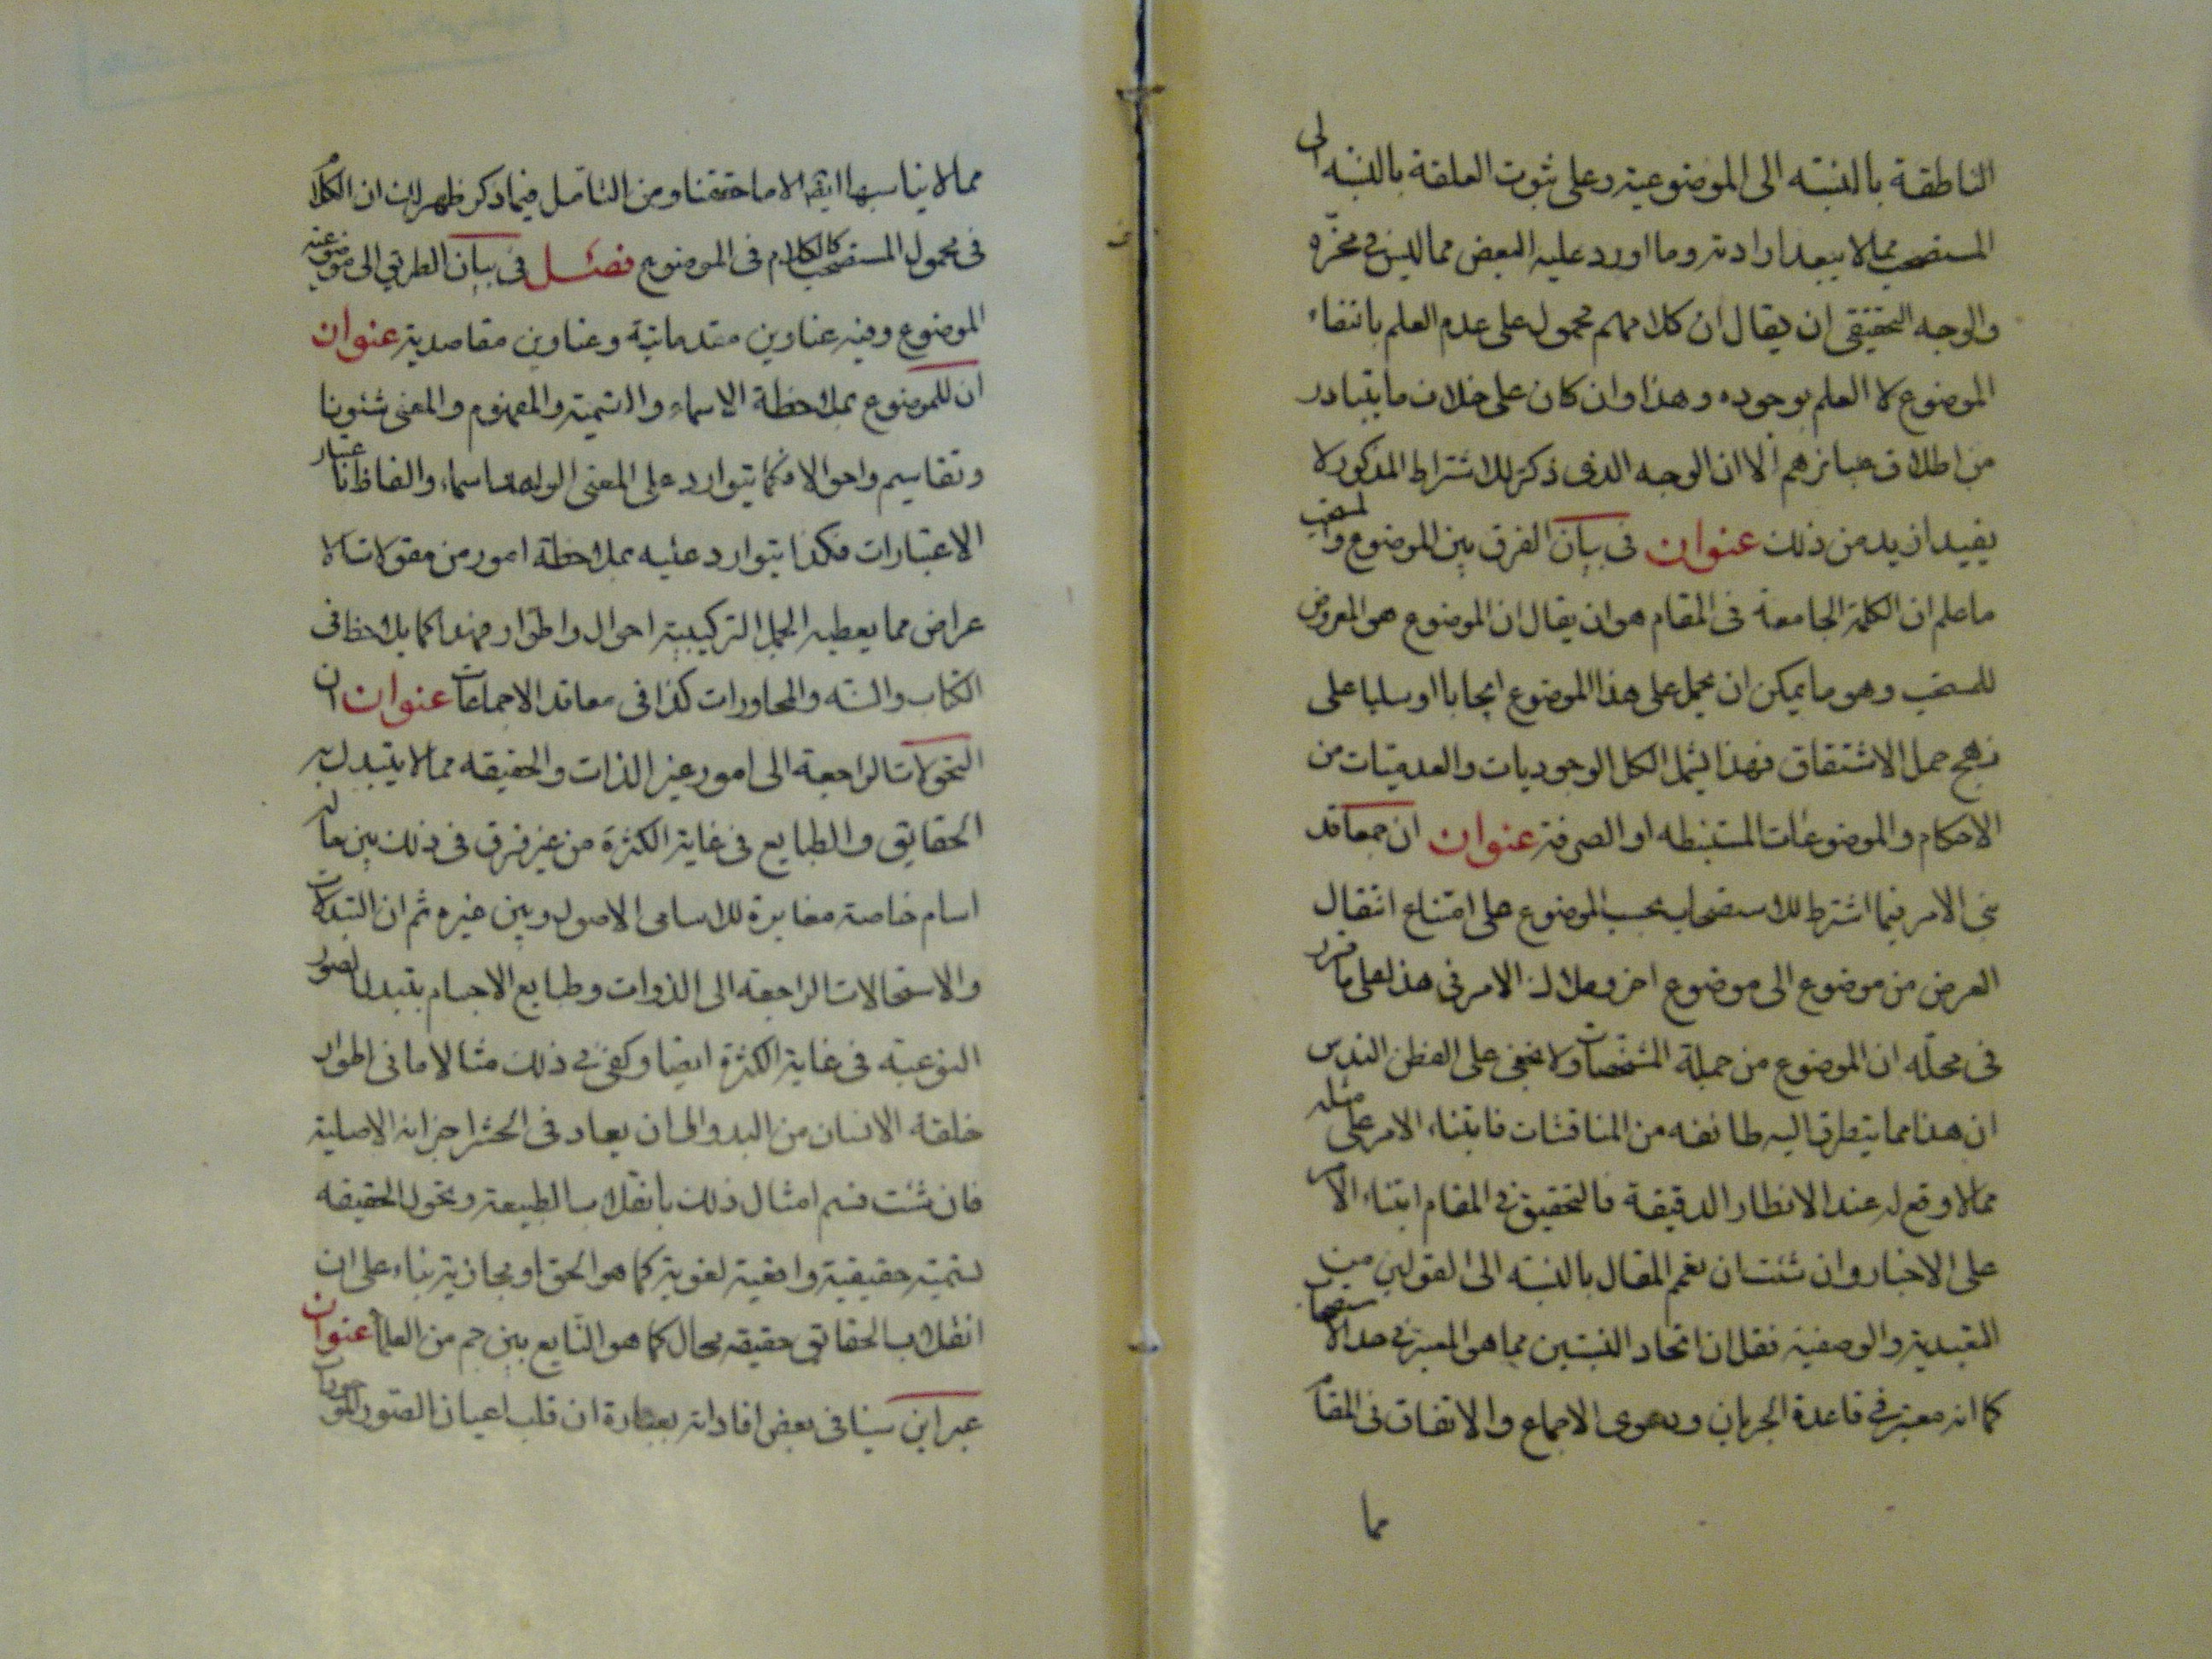 الناطقة بالنسبة الى الموضوعية وعلى ثبوت العلقة بالنسبة الى
المستصحب مما لا يبعد ارادته وما اورد عليه البعض مما ليس في محزه
والوجه التحقيقى ان يقال ان كلامهم محمول على عدم العلم بانتفاء
الموضوع لا العلم بوجوده وهذا وان كان على خلاف ما يتبادر
من اطلاق عبائرهم الا ان الوجه الذى ذكر للاشتراط المذكور لا
يفيد ازيد من ذلك عنوان فى بيان الفرق بين الموضوع والمستصحب
فاعلم ان الكلمة الجامعة فى المقام هو ان يقال ان الموضوع هو المعروض
للمستصحب وهو ما يمكن ان يحمل على هذا الموضوع ايجابا او سلبا على
نهج حمل الاشتقاق فهذا يشمل الكل الوجوديات والعدميات من
الاحكام والموضوعات المستنبطه او الصرفة عنوان ان جمعا قد
بنى الامر فيما اشترط للاستصحاب بحسب الموضوع على امتناع انتقال
العرض من موضوع الى موضوع اخر وملاك الامر فى هذا على ما قرر
فى محله ان الموضوع من جملة المشخصات ولا يخفى على الفطن الندس
ان هذا مما يتطرق اليه طائفه من المناقشات فابتناء الامر على مثله
مما لا وقع له عند الانظار الدقيقة فالتحقيق في المقام ابتناء الامر
على الاخبار وان شئت ان تعمم المقال بالنسبة الى القولين من
التعبدية والوصفية فقل ان اتحاد القضيتين مما هو المعتبر في حد الاستصحاب
كما انه معتبر في قاعدة الجريان ودعوى الاجماع والاتفاق فى المقام
مما
مما لا يناسبها ايضا الا ما حققنا ومن التامل فيما ذكر ظهر لك ان الكلام
فى محمول المستصحب كالكلام فى الموضوع فصل فى بيان الطريق الى موضوعية
الموضوع وفيه عناوين مقدماتية وعناوين مقاصدية عنوان
ان للموضوع بملاحظة الاسماء والتسمية والمفهوم والمعنى شئونا
وتقاسيم واحوالا فكما يتوارد على المعنى الواحد اسماء والفاظ باعتبار
الاعتبارات فكذا يتوارد عليه بملاحظة امور من مقولات الا
عراض مما يعطيه الجمل التركيبية احوال واطوار وهذا كما يلاحظ فى
الكتاب والسنه والمحاورات كذا فى معاقد الاجماعات عنوان ان
التحولات الراجعة الى امور غير الذات والحقيقه مما لا يتبدل به
الحقايق والطبايع فى غاية الكثرة من غير فرق فى ذلك بين ما له
اسام خاصة مغايرة للاسامى الاصول وبين غيره ثم ان التبدلات
والاستحالات الراجعة الى الذوات وطبايع الاجسام بتبدل الصور
النوعية فى غاية الكثرة ايضا وكفى في ذلك مثالا ما فى اطوار
خلقة الانسان من البدو الى ان يعاد فى الحشر اجزائه الاصلية
فان شئت فسم امثال ذلك بانقلاب الطبيعة وتحول الحقيقه
تسمية حقيقية واقعية لغوية كما هو الحق او مجازية بناء على ان
انقلاب الحقائق حقيقه محال كما هو الشايع بين جم من العلماء عنوان
عبر ابن سينا فى بعض افاداته بعبارة ان قلب اعيان الصور